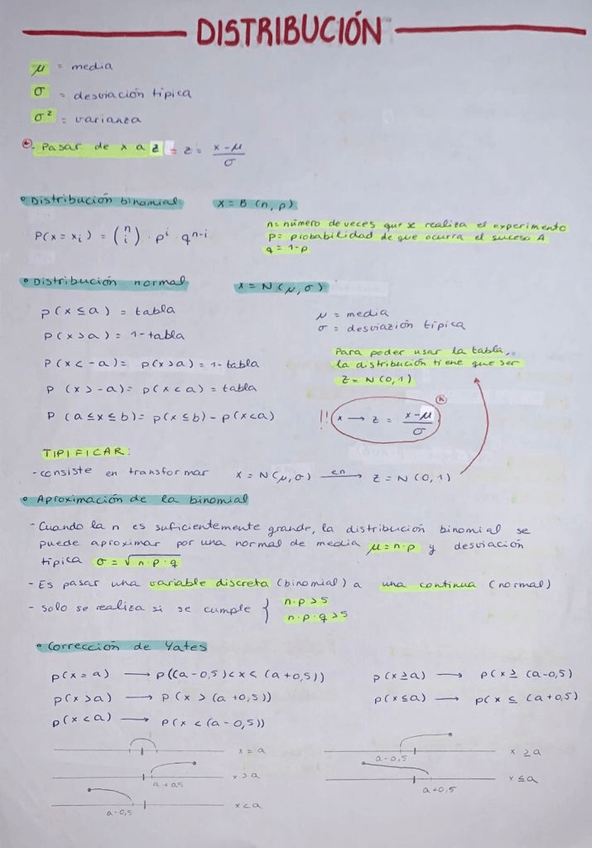 DISTRIBUCIÓN
μ = media
σ = desviación típica
σ² = varianza
* Pasar de x a z = z = x-μ / σ
• Distribución binomial x = B (n, p)
P(x = xᵢ) = (n i) · pⁱ qⁿ⁻ⁱ
n= número de veces que x realiza el experimento
p= probabilidad de que ocurra el suceso A
q = 1-p
• Distribución normal x = N(μ, σ)
p(x ≤ a) = tabla
p(x > a) = 1- tabla
P(x < -a) = p(x > a) = 1- tabla
P (x > -a) = p(x < a) = tabla
P (a ≤ x ≤ b) = p(x ≤ b) - p(x < a)
μ = media
σ = desviazión típica
Para poder usar la tabla,
la distribución tiene que ser
z = N(0, 1)
!! x → z = x-μ / σ *
TIPIFICAR:
- consiste en transformar x = N(μ, σ) en → z = N(0, 1)
• Aproximación de la binomial
- Cuando la n es suficientemente grande, la distribución binomial se
puede aproximar por una normal de media μ = n·p y desviación
típica σ = √n·p·q
- Es pasar una variable discreta (binomial) a una continua (normal)
- solo se realiza si se cumple { n·p > 5
n·p·q > 5
• Corrección de Yates
p(x = a) → p((a - 0,5) < x < (a + 0,5))
p(x > a) → p(x > (a + 0,5))
p(x < a) → p(x < (a - 0,5))
p(x ≥ a) → p(x ≥ (a - 0,5)
p(x ≤ a) → p(x ≤ (a + 0,5)
x = a
a + 0,5 x > a
a - 0,5 x < a
a - 0,5 x ≥ a
a + 0,5 x ≤ a